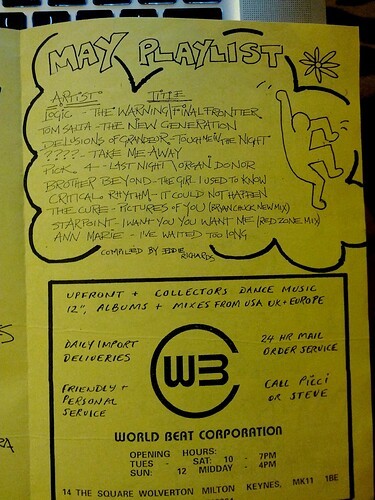 MAY PLAYLIST
ARTIST TITLE
LOGIC - THE WARNING/FINAL FRONTIER
TOM SALTA - THE NEW GENERATION
DELUSIONS OF GRANDEUR - TOUCH ME IN THE NIGHT
???? - TAKE ME AWAY
PICK 4 - LAST NIGHT / ORGAN DONOR
BROTHER BEYOND - THE GIRL I USED TO KNOW
CRITICAL RHYTHM - IT COULD NOT HAPPEN
THE CURE - PICTURES OF YOU (BRYAN CHUCK NEW MIX)
STARPOINT - I WANT YOU YOU WANT ME (RED ZONE MIX)
ANN MARIE - I'VE WAITED TOO LONG
COMPILED BY EDDIE
RICHARDS
UPFRONT + COLLECTORS DANCE MUSIC
12", ALBUMS + MIXES FROM USA UK + EUROPE
DAILY IMPORT
DELIVERIES
24 HR MAIL
ORDER SERVICE
WB
FRIENDLY +
PERSONAL
SERVICE
CALL PICCI
OR STEVE
WORLD BEAT CORPORATION
OPENING HOURS:
TUES - SAT: 10 - 7PM
SUN: 12 MIDDAY - 4PM
14 THE SQUARE WOLVERTON MILTON KEYNES, MK11 1BE